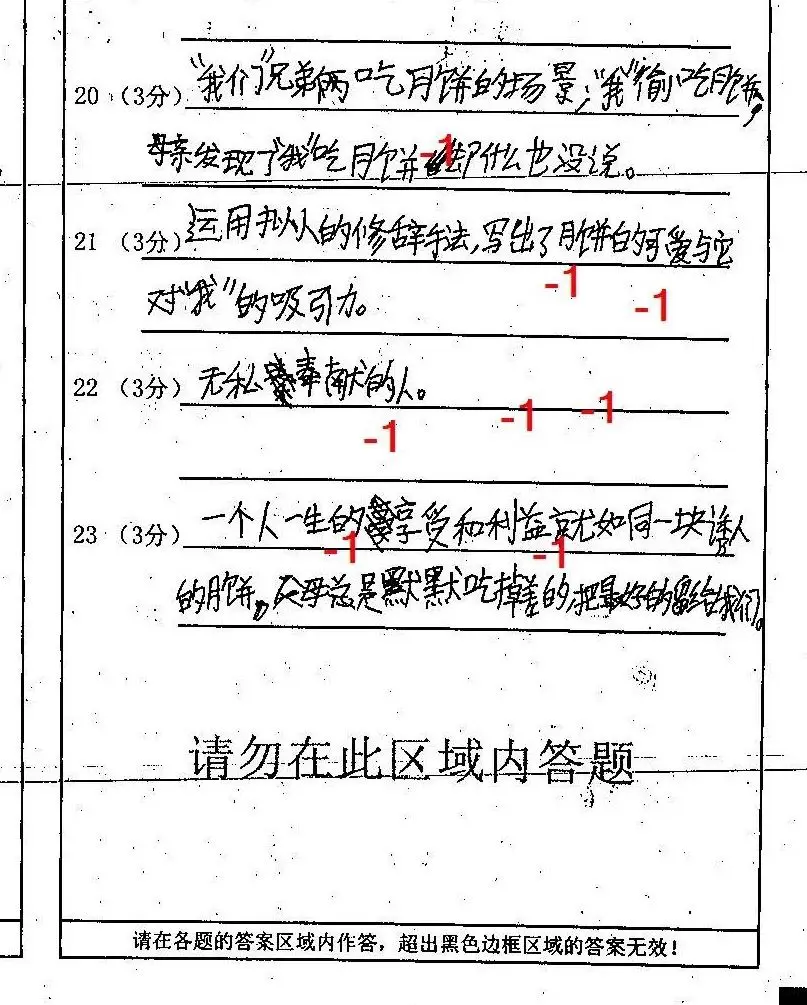 20 (3分) "我们"兄弟俩吃月饼的场景;"我"偷吃月饼,
母亲发现了"我"吃月饼 却什么也没说。
-1
21 (3分) 运用拟人的修辞手法,写出了月饼的可爱与它
-1 -1
对"我"的吸引力。
22 (3分) 无私奉献的人。
-1 -1 -1
23 (3分) 一个人一生的享受和利益就如同一块诱人
-1 -1
的月饼。父母总是默默吃掉差的,把最好的留给我们。
请勿在此区域内答题
请在各题的答案区域内作答,超出黑色边框区域的答案无效!